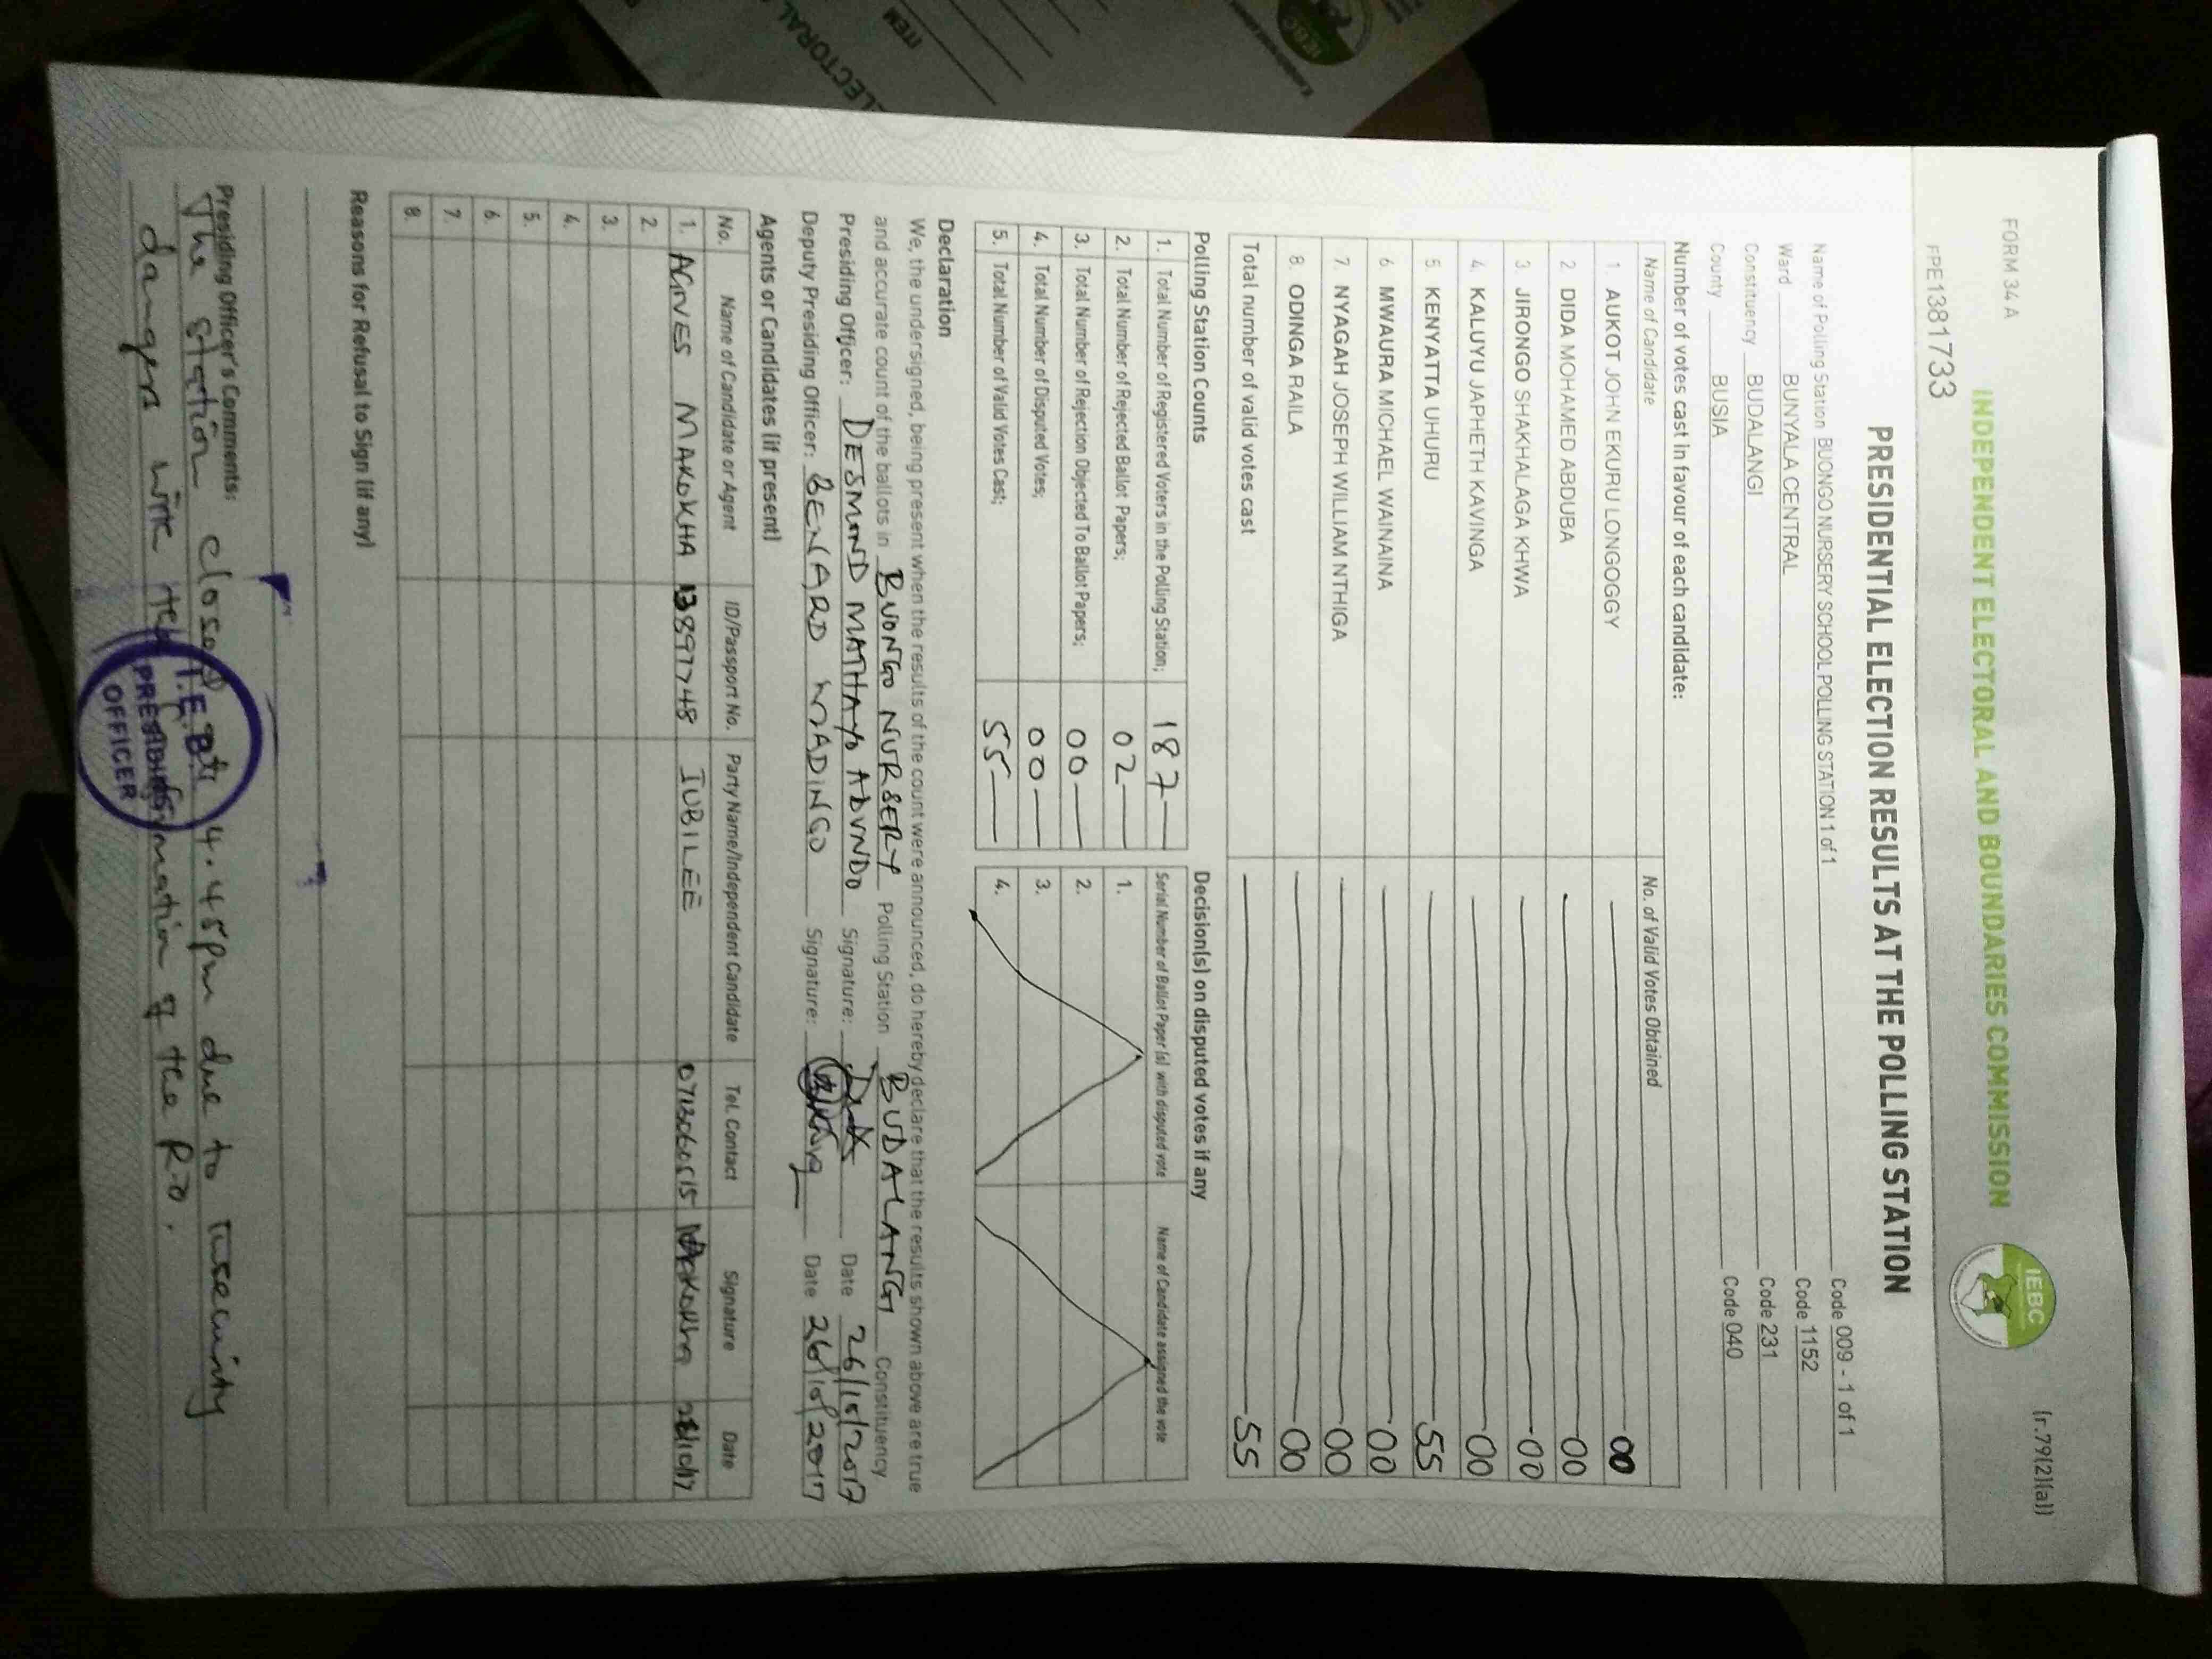 FORM 34 A
(r.79(2)(a))
INDEPENDENT ELECTORAL AND BOUNDARIES COMMISSION
IEBC
FPE1381733
PRESIDENTIAL ELECTION RESULTS AT THE POLLING STATION
Name of Polling Station BUONGO NURSERY SCHOOL POLLING STATION 1 of 1 Code 009 - 1 of 1
Ward BUNYALA CENTRAL Code 1152
Constituency BUDALANGI Code 231
County BUSIA Code 040
Number of votes cast in favour of each candidate:
Name of Candidate No. of Valid Votes Obtained
1. AUKOT JOHN EKURU LONGOGGY 00
2. DIDA MOHAMED ABDUBA 00
3. JIRONGO SHAKHALAGA KHWA 00
4. KALUYU JAPHETH KAVINGA 00
5. KENYATTA UHURU 55
6. MWAURA MICHAEL WAINAINA 00
7. NYAGAH JOSEPH WILLIAM NTHIGA 00
8. ODINGA RAILA 00
Total number of valid votes cast 55
Polling Station Counts Decision(s) on disputed votes if any
1. Total Number of Registered Voters in the Polling Station; 187 Serial Number of Ballot Paper (s) with disputed vote Name of Candidate assigned the vote
2. Total Number of Rejected Ballot Papers; 02 1.
3. Total Number of Rejection Objected To Ballot Papers; 00 2.
4. Total Number of Disputed Votes; 00 3.
5. Total Number of Valid Votes Cast; 55 4.
Declaration
We, the undersigned, being present when the results of the count were announced, do hereby declare that the results shown above are true
and accurate count of the ballots in BUONGO NURSERY Polling Station BUDALANGI Constituency
Presiding Officer: DESMOND MATHAYO ABUNDO Signature: Date 26/10/2017
Deputy Presiding Officer: BENARD WADINGO Signature: Date 26/10/2017
Agents or Candidates (if present)
No. Name of Candidate or Agent ID/Passport No. Party Name/Independent Candidate Tel. Contact Signature Date
1. AGNES MAKOKHA 13897748 JUBILEE 0713060515 Makokha
2.
3.
4.
5.
6.
7.
8.
Reasons for Refusal to Sign (if any)
Presiding Officer's Comments:
The station closed at 4.45pm due to insecurity
dangers with the information of the R.O.
I.E.B.C
PRESIDING
OFFICER
ELECTORAL
ITEM
IEBC